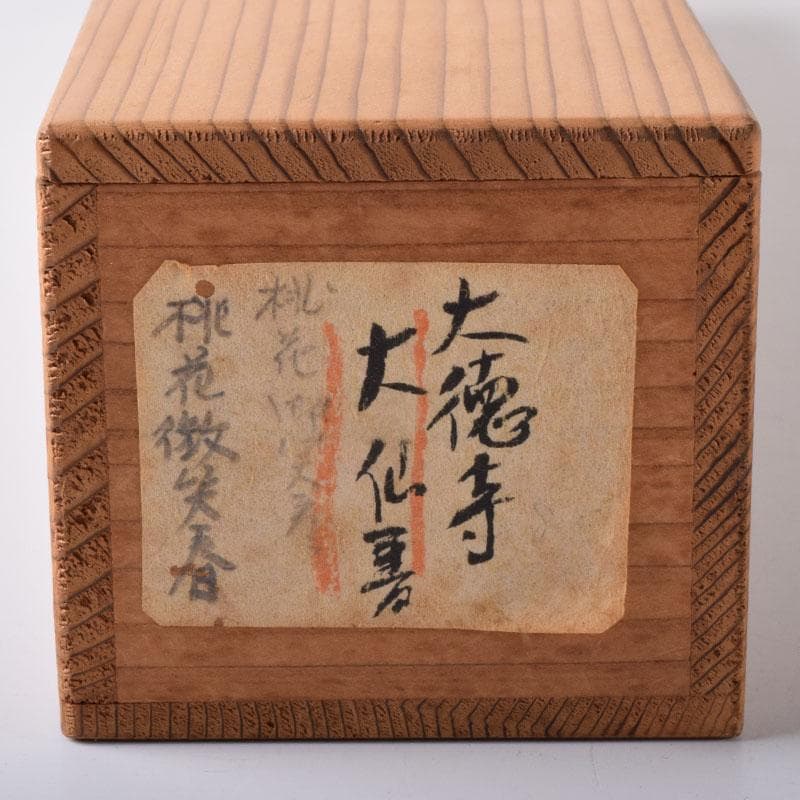 大徳寺
大仙書
桃花
桃花微笑春